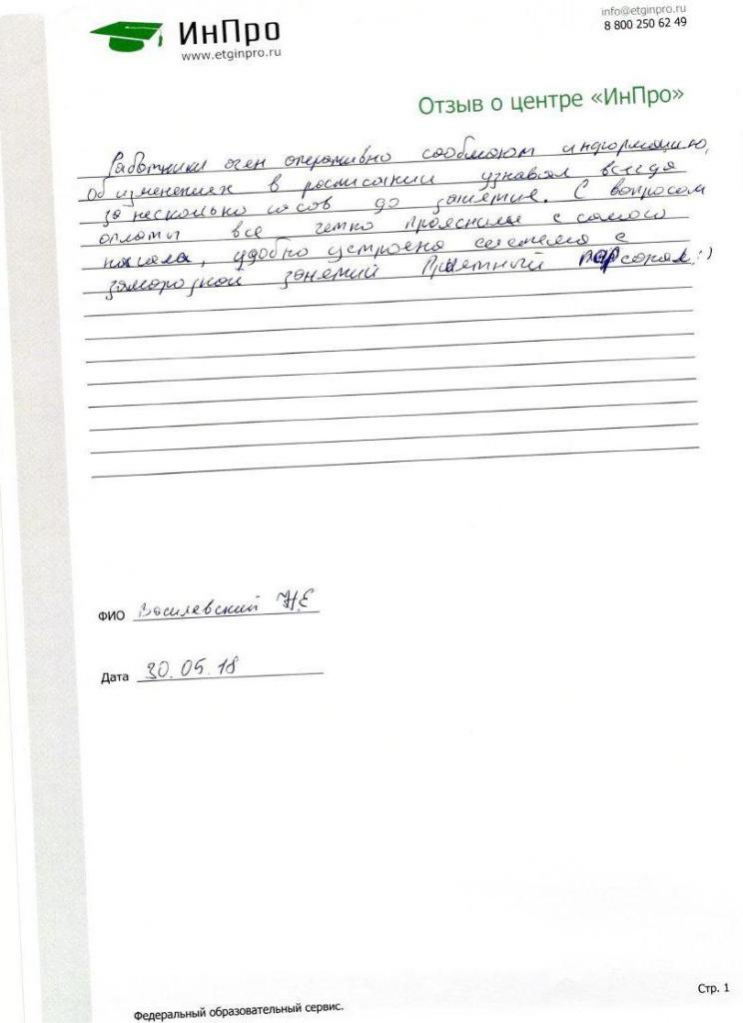 ИнПро
www.etginpro.ru
info@etginpro.ru
8 800 250 62 49
Отзыв о центре «ИнПро»
Работники очен оперативно сообщают информацию,
Об изменениях в росписании узнавал всегда
за несколько часов до занятия. С вопросом
оплаты все четко прояснили с самого
начала, удобно устроена система с
заморозкой занятий Приятный персонал :)
ФИО Василевский Н.Е
Дата 30.05.18
Стр. 1
Федеральный образовательный сервис.